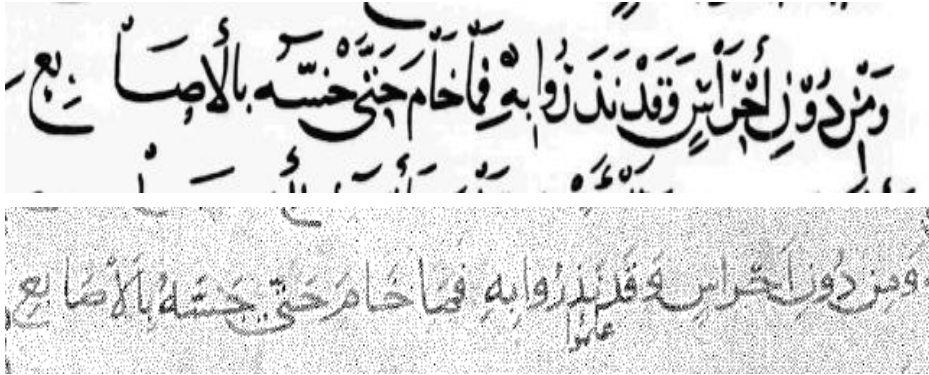 وَمِنْ دُوْنِ أَحْرَاسٍ وَقَدْ نَذَرُوا بِهِ فَمَا خَامَ حَتَّى خسّه بالأصابع
وَمِن دُونِ اَحْرَاسِ وَقَدْ نَذِرُوا بِهِ فَمَا خَامَ حَتّى جَسَّهُ بِالَأصَابعِ
علموا